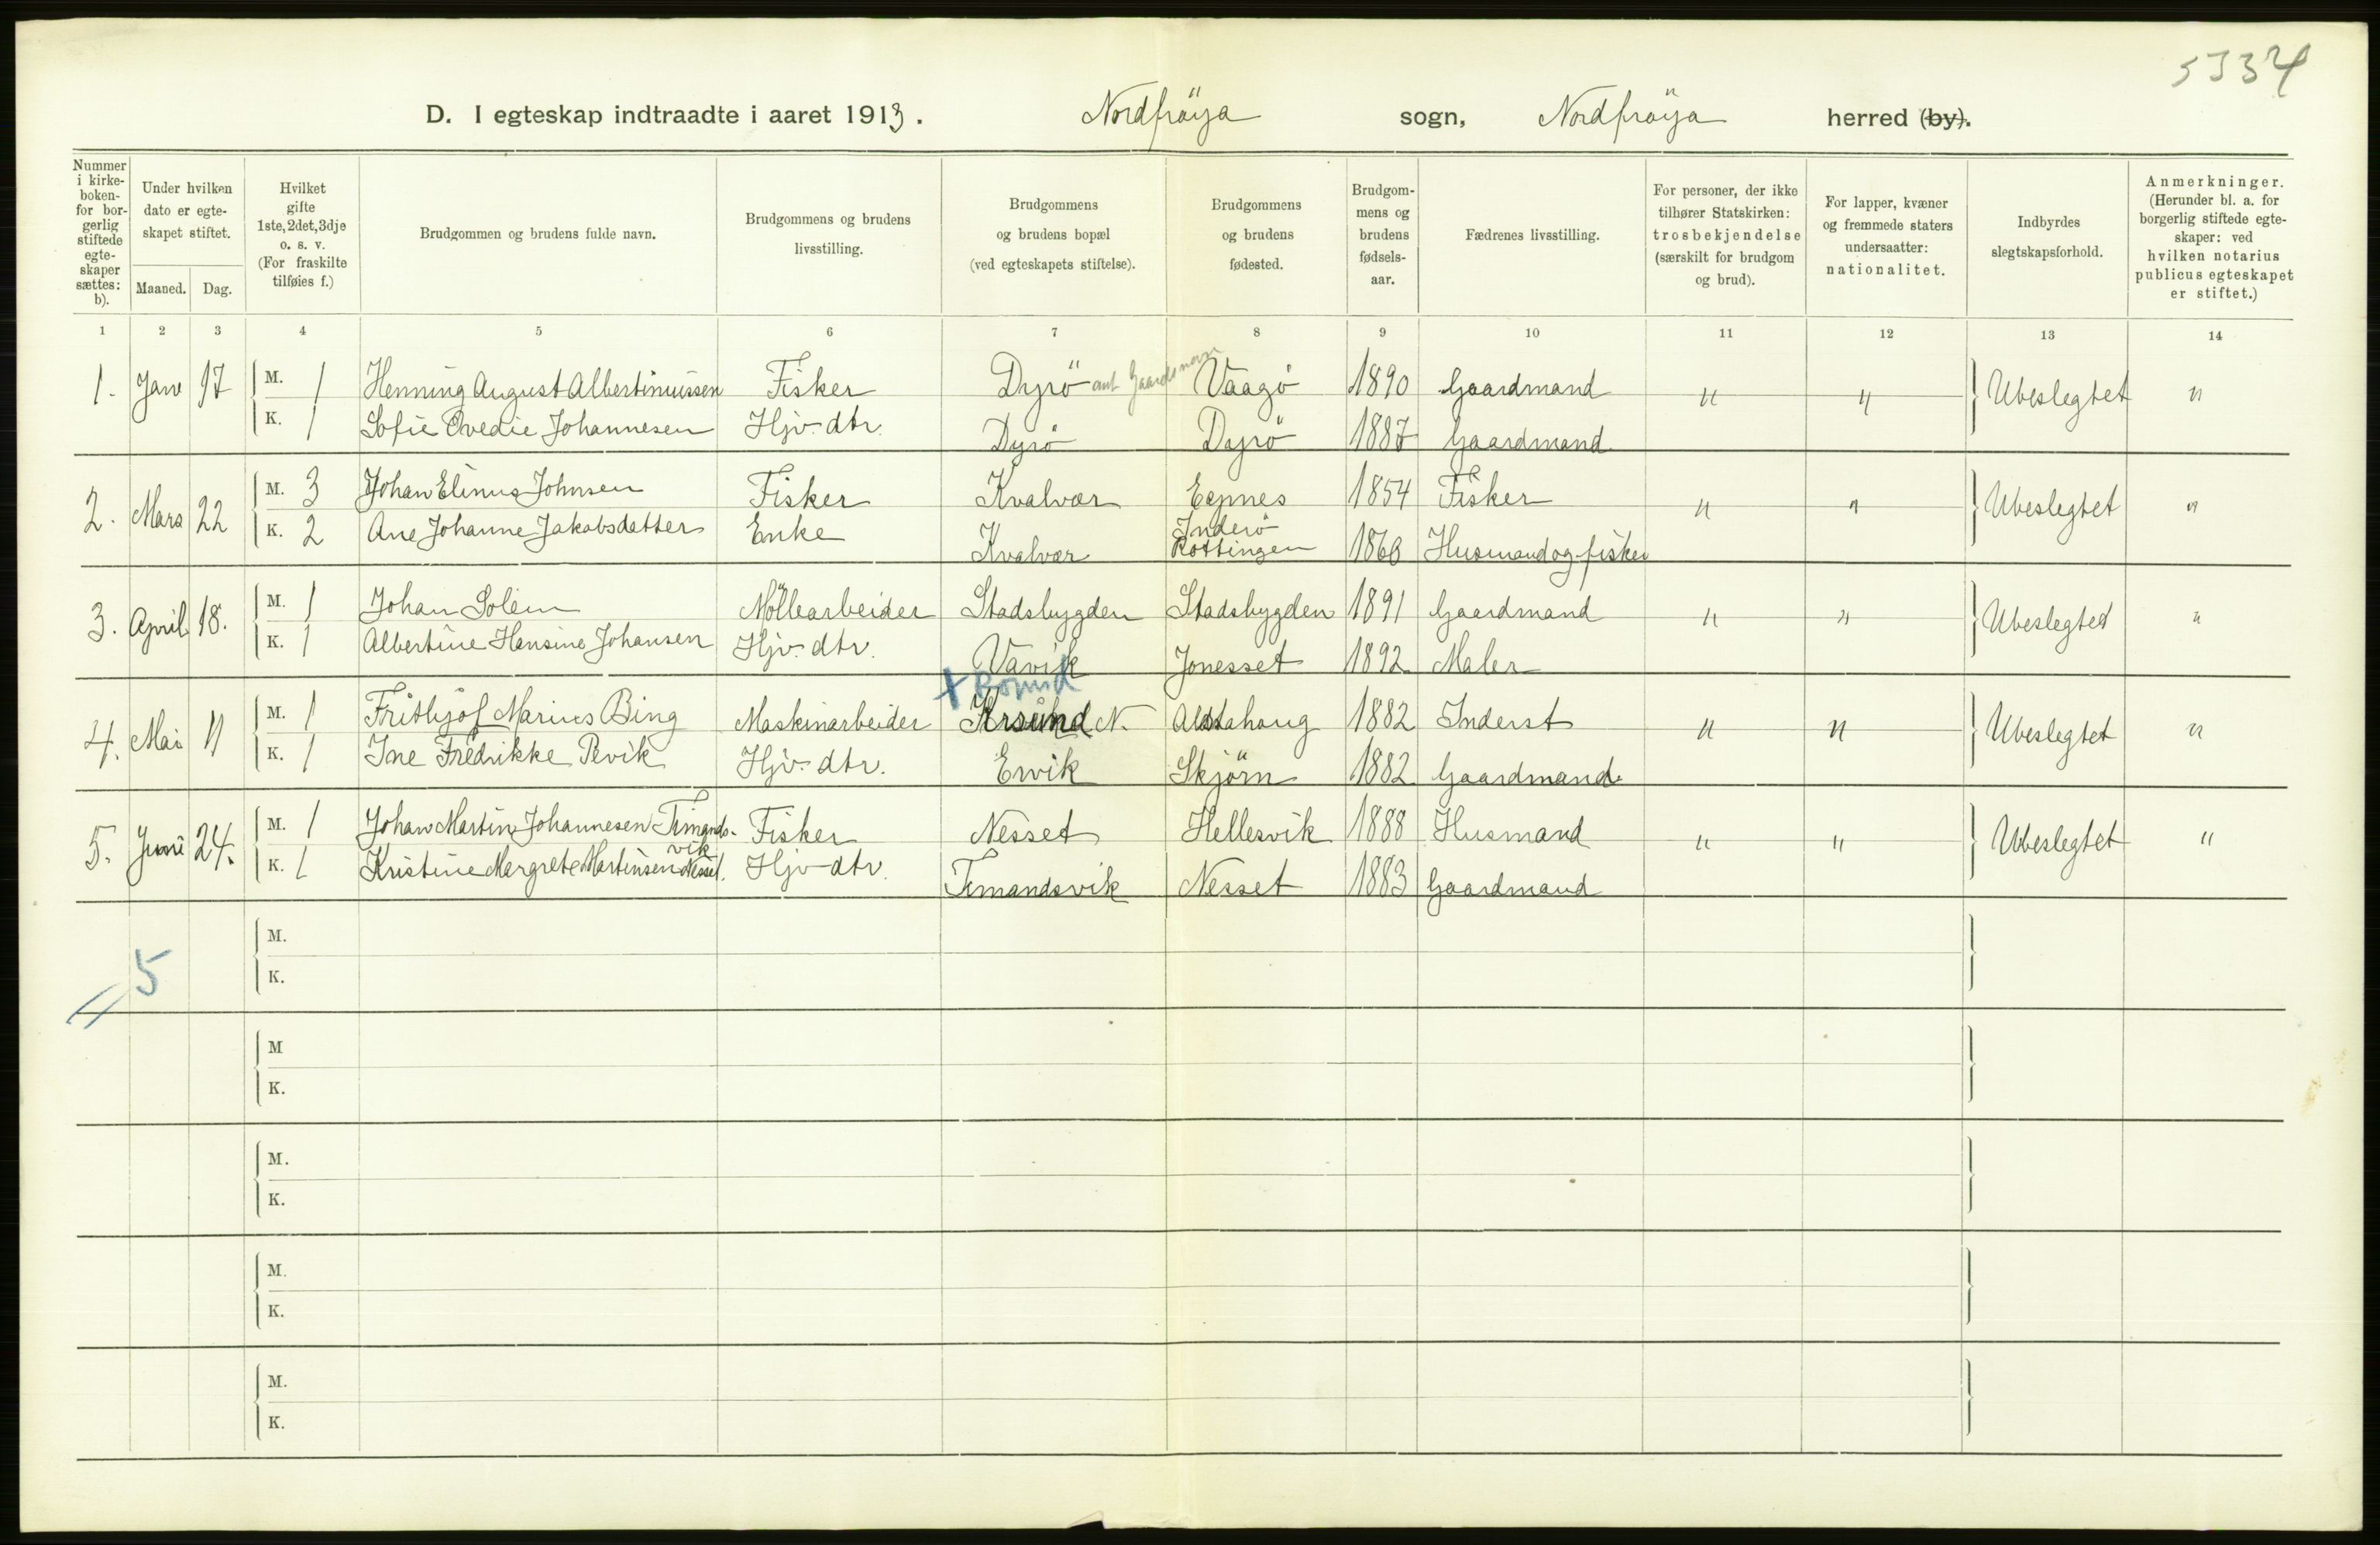 5334
D. I egteskap indtraadte i aaret 1913. Nordfröya sogn, Nordfröya herred (by).
Nummer i kirke-boken- for bor-gerlig stiftede egte-skaper sættes: b).
Under hvilken dato er egte-skapet stiftet.
Maaned. Dag.
Hvilket gifte 1ste, 2det, 3dje o. s. v. (For fraskilte tilføies f.)
Brudgommen og brudens fulde navn.
Brudgommens og brudens livsstilling.
Brudgommens og brudens bopæl (ved egteskapets stiftelse).
Brudgommens og brudens fødested.
Brudgom-mens og brudens fødsels-aar.
Fædrenes livsstilling.
For personer, der ikke tilhører Statskirken: trosbekjendelse (særskilt for brudgom og brud).
For lapper, kvæner og fremmede staters undersaatter: nationalitet.
Indbyrdes slegtskapsforhold.
Anmerkninger. (Herunder bl. a. for borgerlig stiftede egte-skaper: ved hvilken notarius publicus egteskapet er stiftet.)
1 2 3 4 5 6 7 8 9 10 11 12 13 14
1. Jan 17 M. 1 Henning August Albertinussen Fisker Dyrö Vaagö 1890 Gaardmand " " Ubeslegtet "
K. 1 Sofie Ovedie Johannesen Hjv. dtr. Dyrö Dyrö 1887 Gaardmand
2. Mars 22 M. 3 Johan Elinus Johnsen Fisker Kvalvær Egnes 1854 Fisker " " Ubeslegtet "
K. 2 Ane Johanne Jakobsdatter Enke Kvalvær Inderö Rottingen Husmand og fisker
3. April 18. M. 1 Johan Solem Möllearbeider Stadsbygden Stadsbygden 1891 Gaardmand " " Ubeslegted "
K. 1 Albertine Hansine Johansen Hjv. dtr. Vavik Jonesset 1892 Maler
4. Mai 11 M. 1 Frithjof Marius Bing Maskinarbeider Krsund N. Alstahoug 1882 Inderst " " Ubeslegtet "
K. 1 Ine Fredrikke Revik Hjv. dtr. Ervik Skjörn 1882 Gaardmand
5. Juni 24. M. 1 Johan Martin Johannesen Timands-vik Fisker Nesset Hellesvik 1888 Husmand " " Ubeslegtet "
K. 1 Kristine Margrete Martinsen Nesset. Hjv dtr. Timandsvik Nesset 1883 Gaardmand
M.
K.
5
M
K.
M.
K.
M.
K.
M.
K.